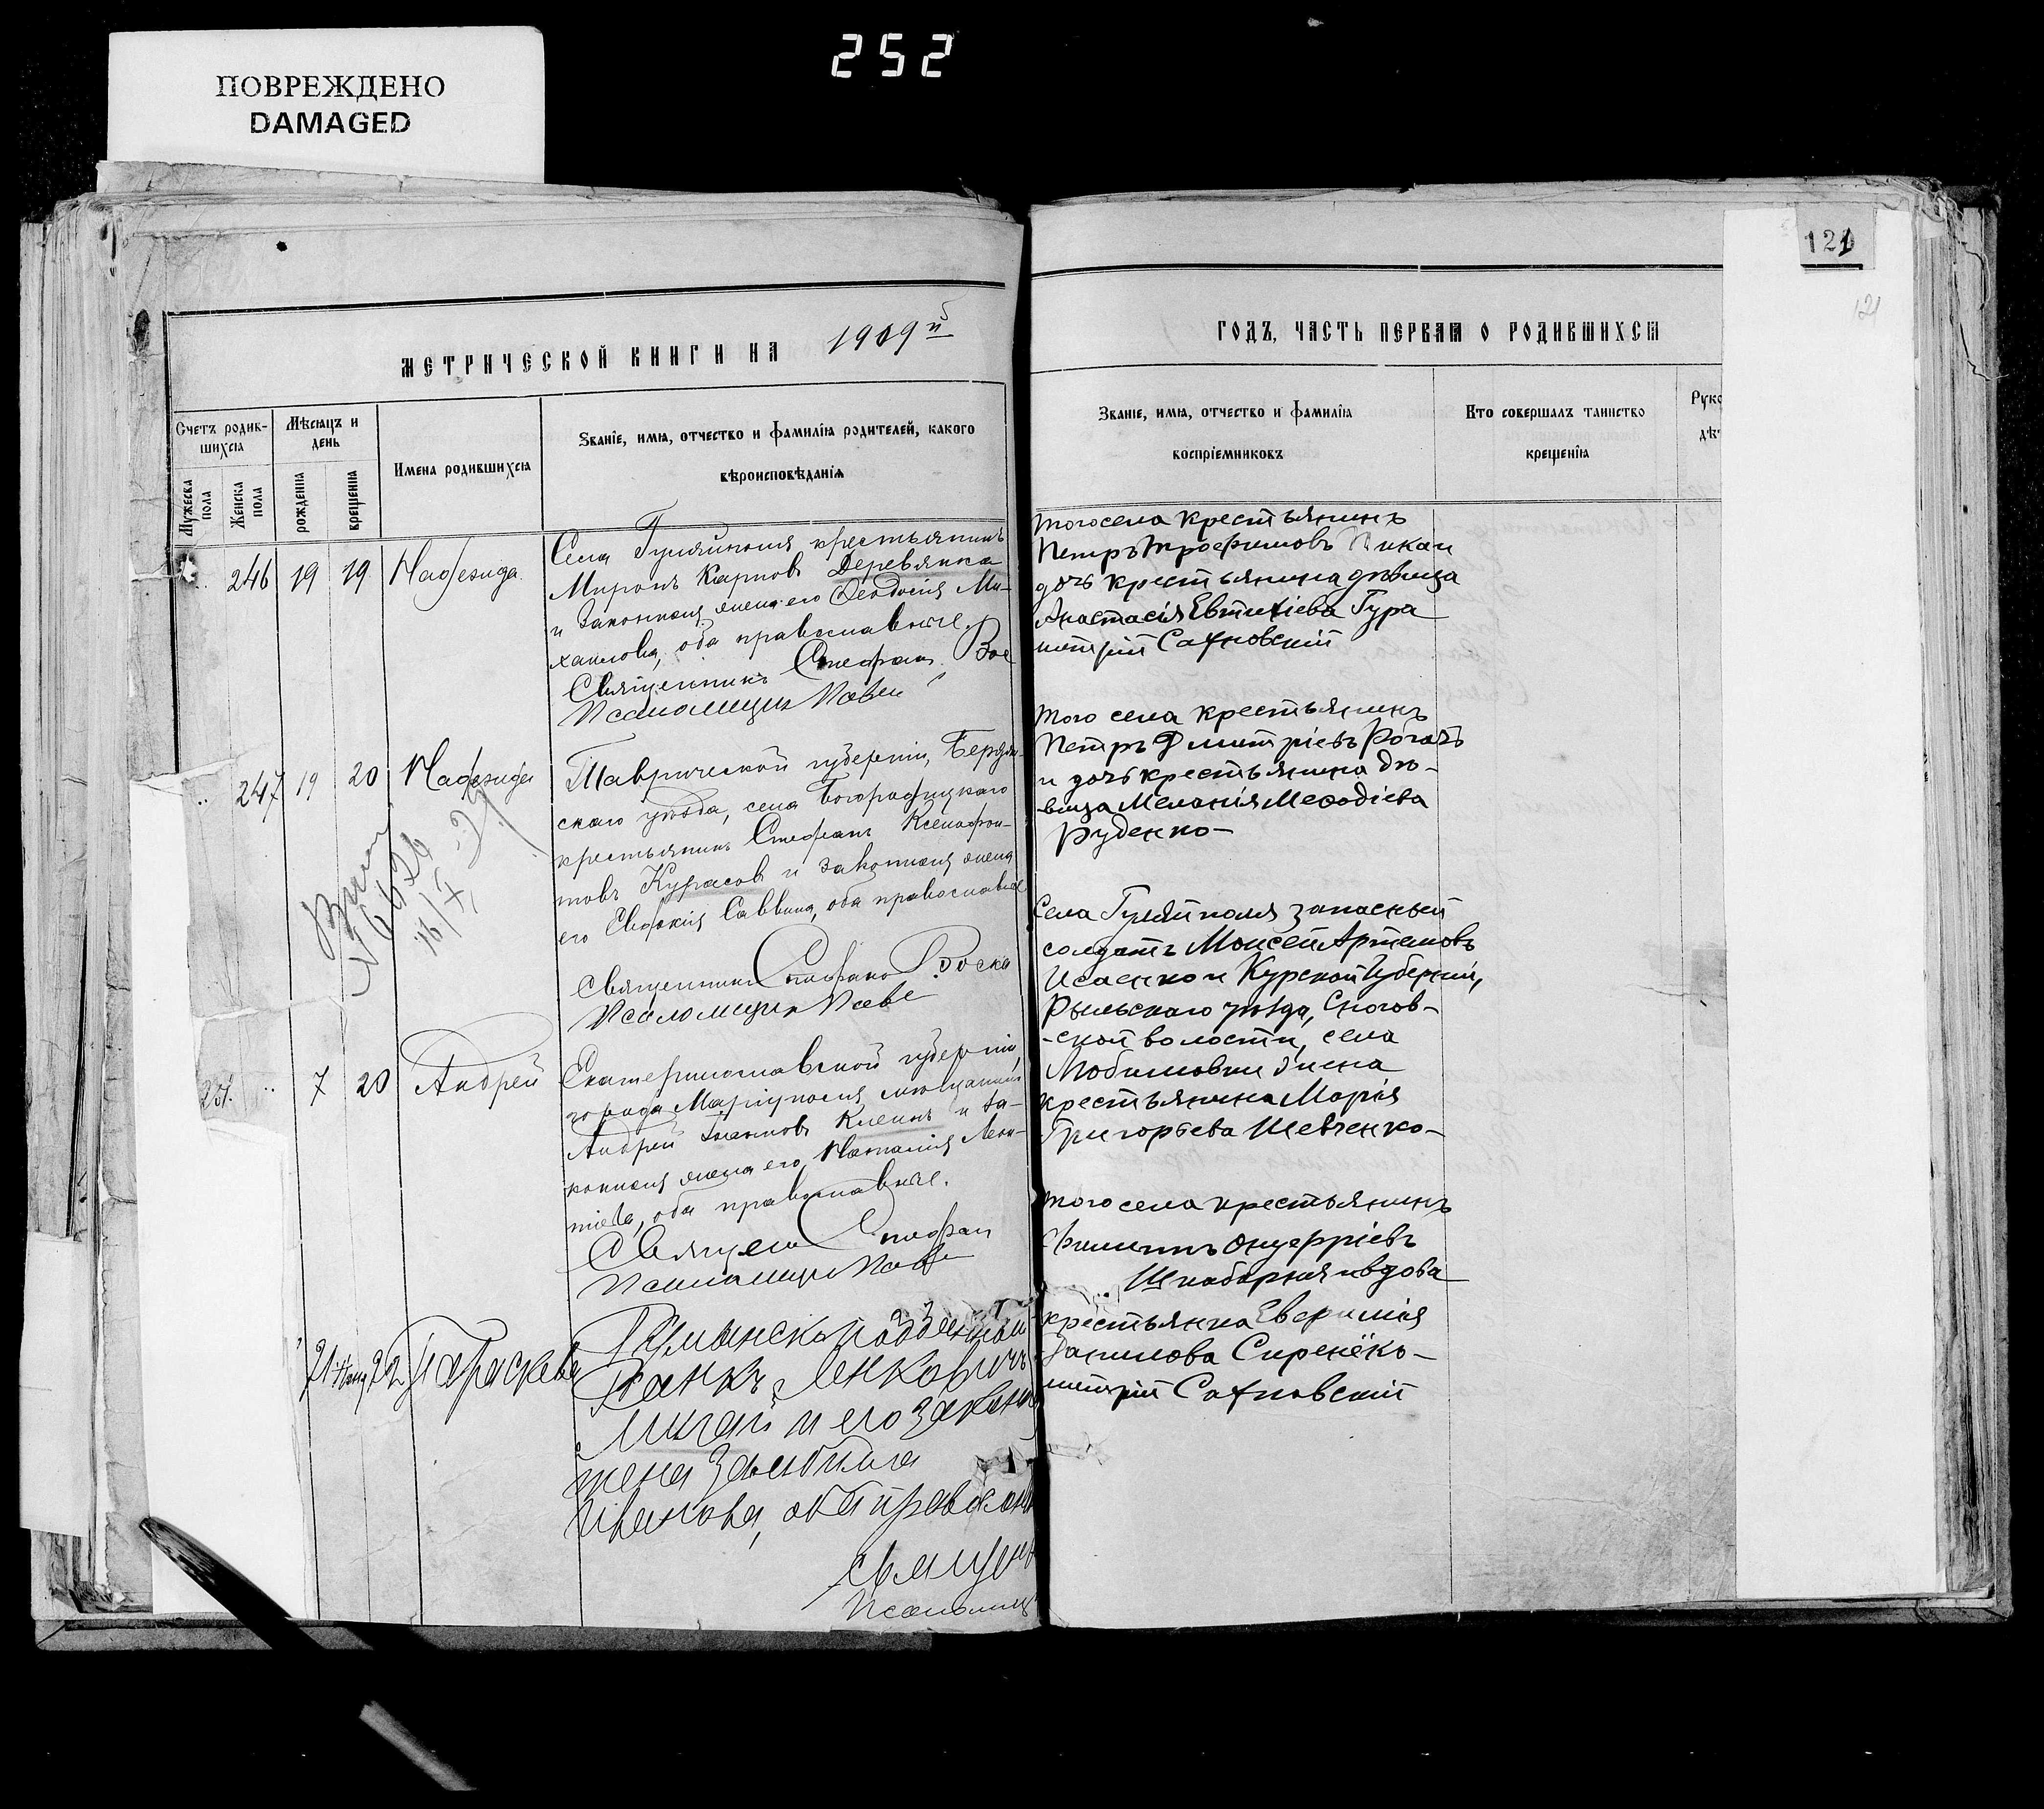 252
ПОВРЕЖДЕНО
DAMAGED
121
121
МЕТРИЧЕСКОЙ КНИГИ НА 1909й
ГОДЪ, ЧАСТЬ ПЕРВАЯ О РОДИВШИХСЯ
Счетъ родив-
шихся
Мужеска
пола
Женска
пола
Мѣсяцъ и
день
рожденія
крещенія
Имена родившихся
Званіе, имя, отчество и фамилія родителей, какого
вѣроисповѣданія
Званіе, имя, отчество и фамилія
воспріемниковъ
Кто совершалъ таинство
крещенія
Руко
дѣт
246 19 19 Надежда
Села Гуляйполя крестьянинъ
Миронъ Карповъ Деревянка
и законная жена его Ѳеодосія Ми-
хаилова, оба православные.
Священникъ Стефанъ Вос
Псаломщикъ Павел
того села крестьянинъ
Петръ Трофимовъ Пикан
дочь крестьянина дѣвица
Анастасія Евтихіева Гура
митрій Сахновскій
247 19 20 Надежда
Таврической губерніи, Бердян-
скаго уѣзда, села
крестьянинъ Стефанъ Ксенофон-
товъ Курасовъ и законная жена
его Евдокія Саввина, оба православные
Священникъ Стефанъ Воска
Псаломщикъ Павел
того села крестьянинъ
Петръ Дмитріевъ Рогачъ
и дочь крестьянина дѣ-
вица Меланія Меѳодіева
Руденко-
N 6626
16/7
7 20 Андрей
Екатеринославской губерніи,
города Маріуполя мѣщанинъ
Андрей Клеинъ и за-
конная жена его Наталія Леон-
тіева, оба православные.
Священ Стефан
Псаломщикъ Павел
Села Гуляйполя запасный
солдатъ Моисей Артемовъ
Исаенко и Курской губерніи,
Рыльскаго уѣзда, Сногов-
-ской волости, села
Любимовки жена
крестьянина Марія
Григорьева Шевченко-
21 22 Параскева
23
Румынскоподданный
Станкъ Ленковичъ
Михай и его законн
жена
Иванова, оба православн
Священ
Псаломщ
того села крестьянинъ
Филиппъ Онуфріевъ
Шкабарня и вдова
крестьянка Евфимія
Данилова Сиренёко-
митрій Сахновскій